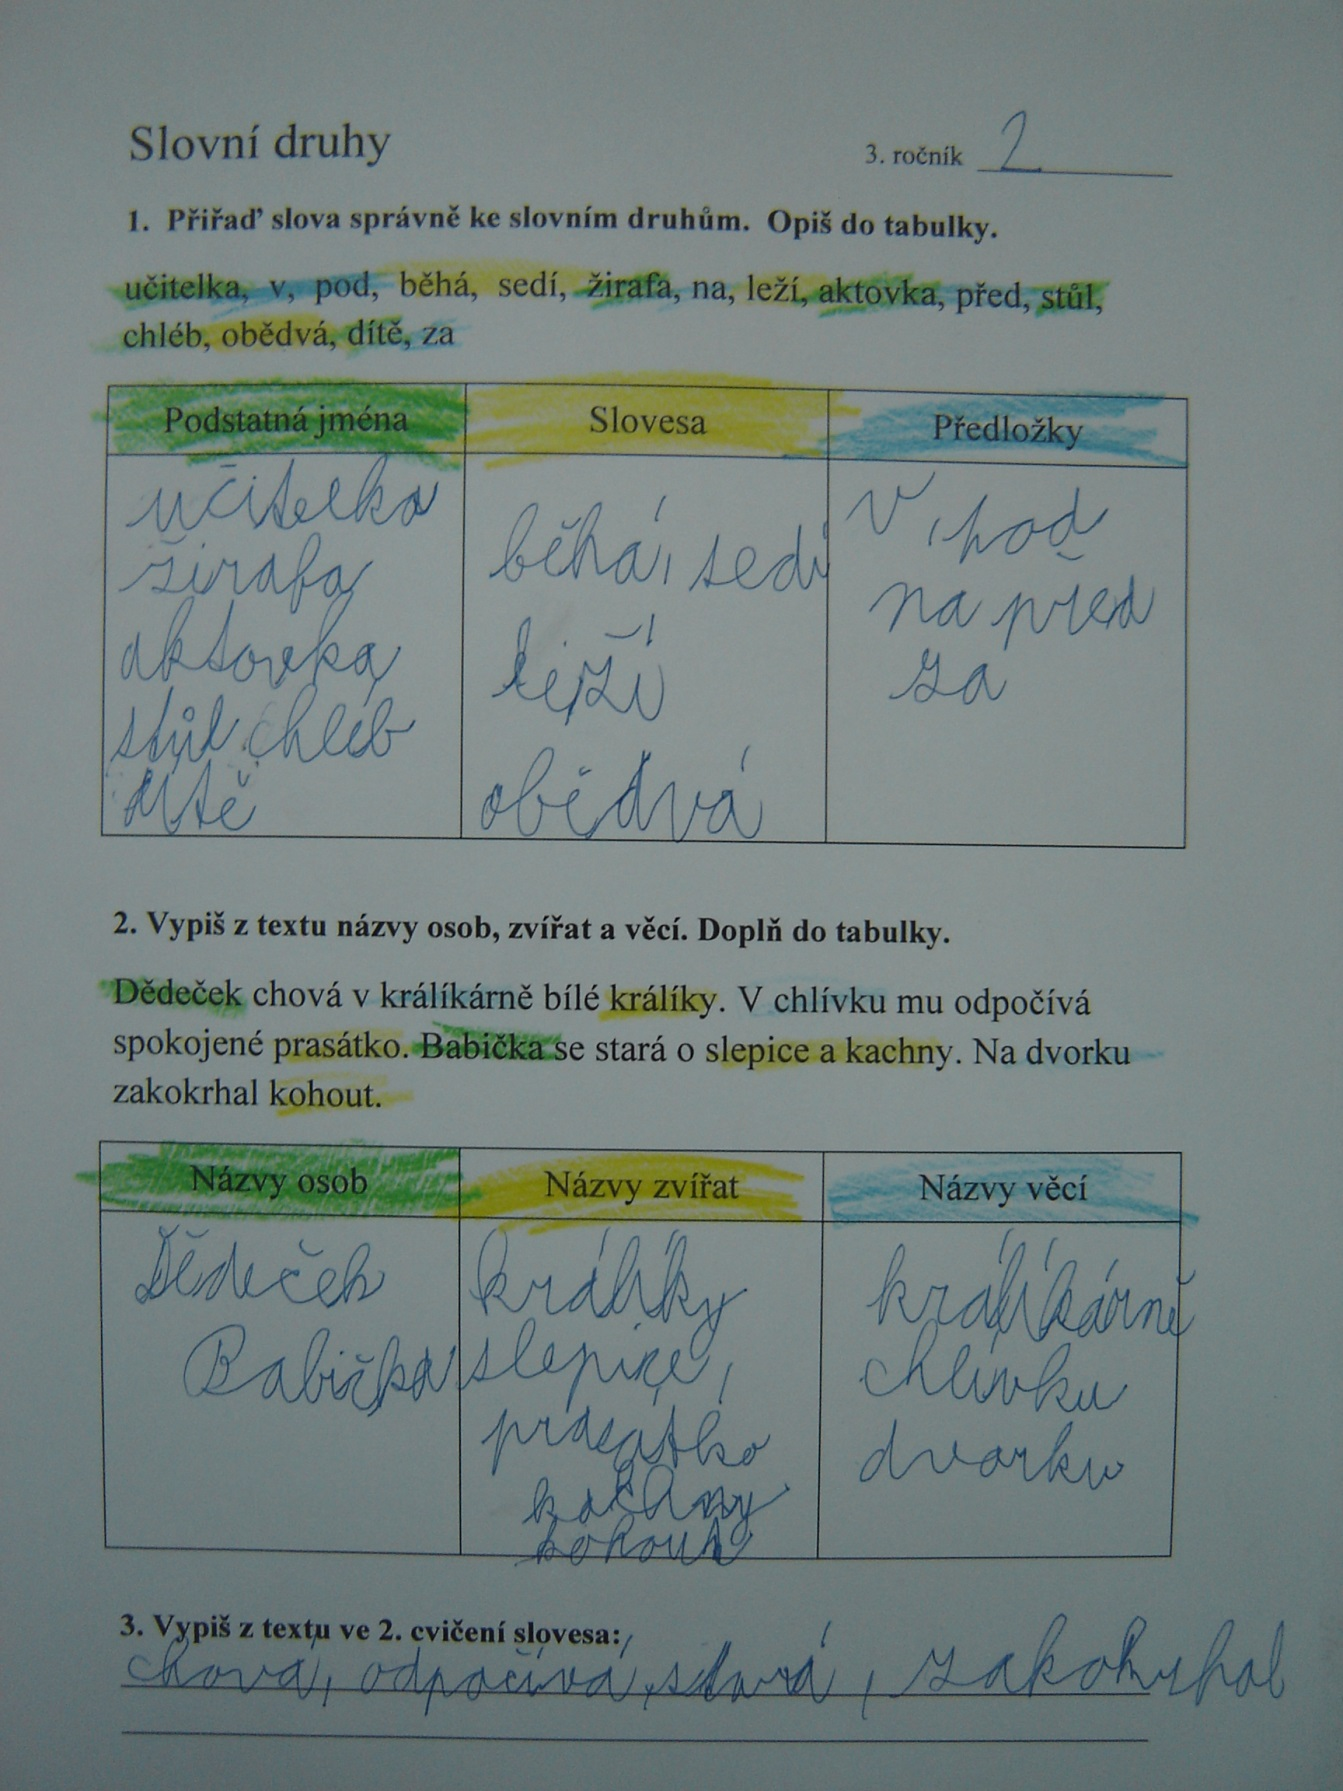 Slovní druhy
3. ročník 2
1. Přiřaď slova správně ke slovním druhům. Opiš do tabulky.
učitelka, v, pod, běhá, sedí, žirafa, na, leží, aktovka, před, stůl,
chléb, obědvá, dítě, za
Podstatná jména Slovesa Předložky
učitelka
žirafa
aktovka
stůl chléb
dítě
běhá, sedí
leží
obědvá
v, pod
na před
za
2. Vypiš z textu názvy osob, zvířat a věcí. Doplň do tabulky.
Dědeček chová v králíkárně bílé králíky. V chlívku mu odpočívá
spokojené prasátko. Babička se stará o slepice a kachny. Na dvorku
zakokrhal kohout.
Názvy osob Názvy zvířat Názvy věcí
Dědeček
Babička
králíky
slepice,
prasátko
kachny
kohout
králíkárně
chlívku
dvorku
3. Vypiš z textu ve 2. cvičení slovesa:
chová, odpočívá, stará, zakokrhal